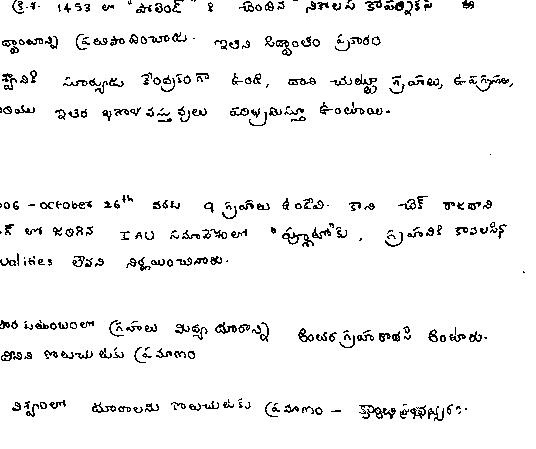 క్రీ.శ. 1453 లో "పోలెండ్" కి చెందిన "నికోలస్ కోపర్నికస్" ఈ
ద్ధాంతాన్ని ప్రతిపాదించాడు. ఇతని సిద్ధాంతం ప్రకారం
సూర్యుడు కేంద్రకంగా ఉండి, దాని చుట్టూ గ్రహాలు, ఉపగ్రహాలు,
రియు ఇతర ఖగోళ వస్తువులు పరిభ్రమిస్తూ ఉంటాయి.
006 - October 26th వరకు 9 గ్రహాలు ఉండేవి. కాని చెక్ రాజధాని
గ్ లో జరిగిన IAU సమావేశంలో "ప్లూటో"కు, గ్రహానికి కావలసిన
ualities లేవని నిర్ణయించినారు.
కుటుంబంలో గ్రహాల మధ్య దూరాన్ని అంతర గ్రహ రాశి అంటారు.
కొలుచుటకు ప్రమాణం
విశ్వంలో దూరాలను కొలుచుటకు ప్రమాణం -